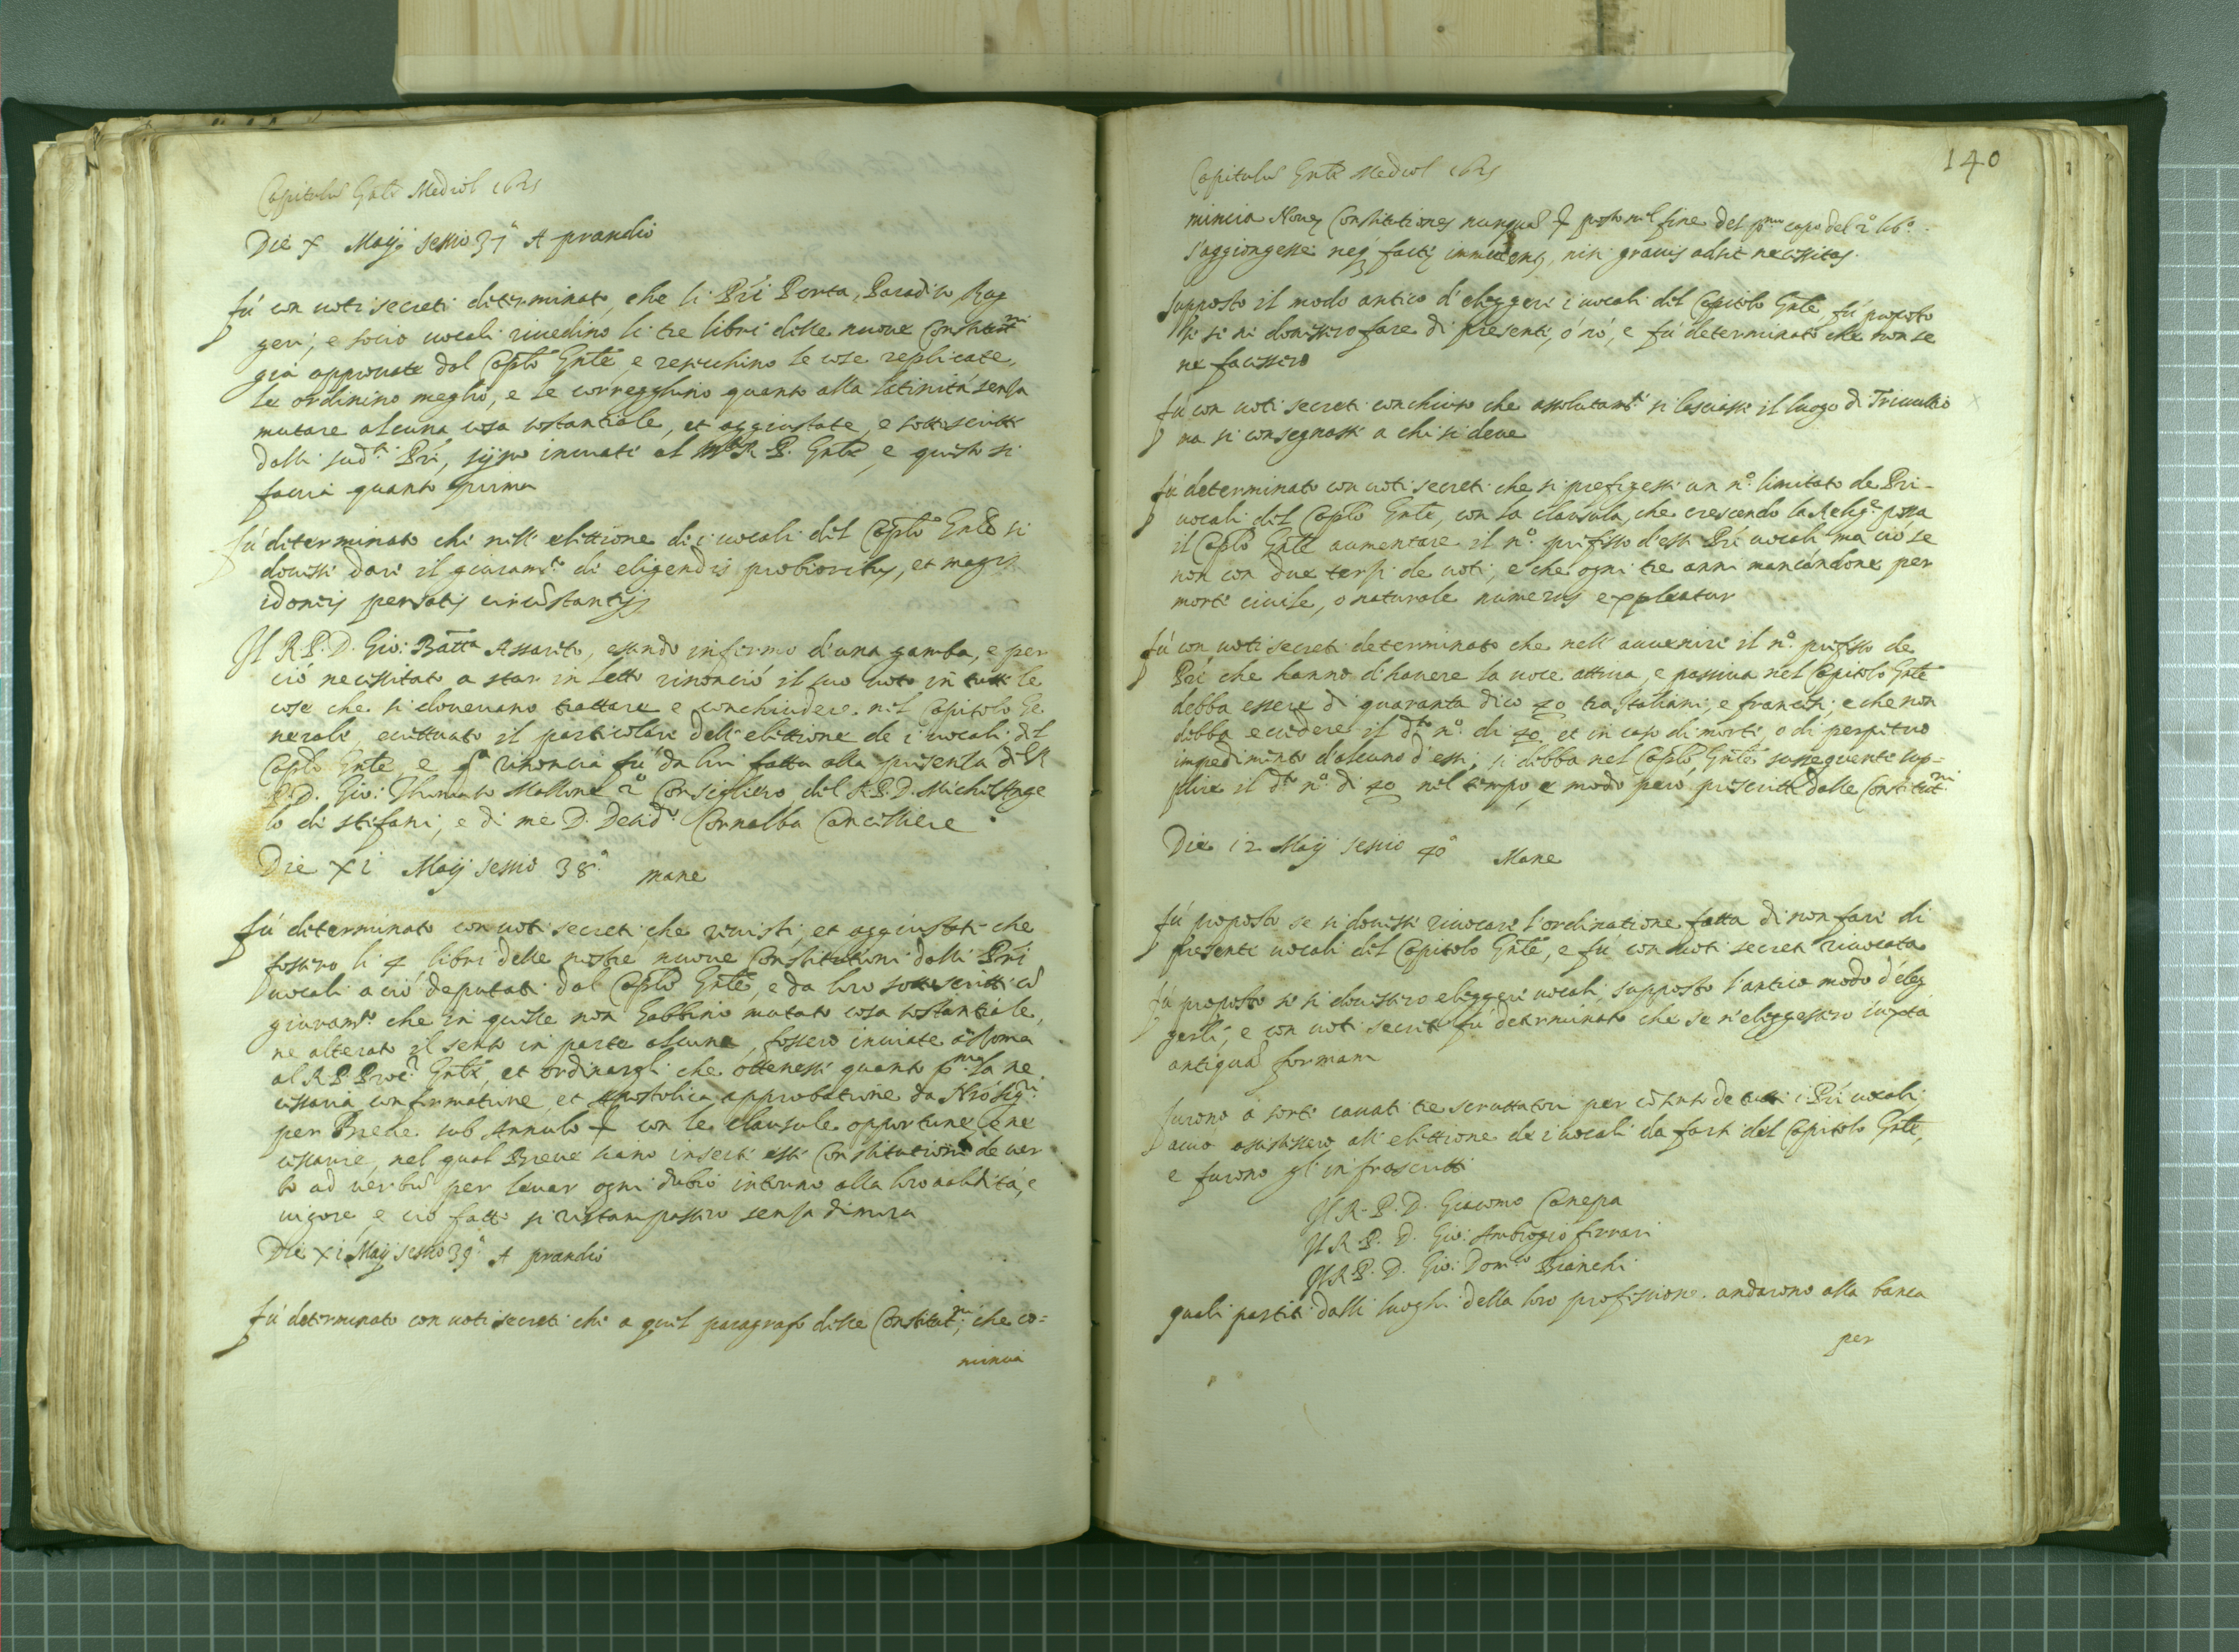 Capitulũ Gnle Mediol 1625
Die X Maij sessio 37ª A prandio
Fù con uoti secreti determinato, che li Pri Porta, Paradiso, Rug
geri, e socio uocali riuedino li tre libri delle nuoue Constitutni
già approuate dal Caplo Gnle, e resechino le cose replicate,
le ordinino meglio, e le correghino quanto alla latinità senza
mutare alcuna cosa sostantiale, et aggiustate, e sottoscritti
dalli sudti Pri, sijno inuiati al M R P. Gnle, e questo si
faccia quanto prima
Fù determinato che nell' elettione de i uocali del Caplo Gnle si
douessi dare il giuramto di eligendis probioribus, et magis
idoneis pensatis circũstantijs
Il R. P. D. Gio: Batta Assarito, essendo infermo d'una gamba, e per
ciò necessitato a star in letto rinonciò il suo uoto in tutte le
cose che si doueuano trattare e conchiudere nel Capitolo Ge
nerale, eccettuato il particolare dell' elettione de i uocali del
Caplo Gnle e qta rinoncia fù da lui fatta alla presenza del R
P. D. Gio: Thomaso Mallone 2º Consigliero, del R. P. D. Michel'Ange
lo di Stefani, e di me D. Desidº Cornalba Cancelliere
Die XI Maij sessio 38ª mane
Fù determinato con uoti secreti che reuisti, et aggiustati che
fossero li 4 libri delle nostre nuoue Constitutioni dalli Pri
uocali a ciò deputati dal Caplo Gnle, e da loro sottoscritti cõ
giuramto che in quelle non habbino mutato cosa sostantiale,
ne alterato il senso in parte alcuna, fossero inuiate à Roma
al R. P. Proc. Gnle, et ordinargli che ottenesse quanto pma la ne
cessaria confirmatione, et Apostolica approbatione da Nro Sigri
per Breue sub Annulo + con le clausule opportune, e ne
cessarie, nel qual Breue siano inserti esse Constitutioni de uer
bo ad uerbũ per leuar ogni dubio intorno alla loro ualidità, e
uigore, e ciò fatto si ristampassero senza dimora
Die XI Maij sessio 39ª A prandio
Fù determinato con uoti secreti che a quel paragrafo delle Constitutni, che co=
mincia
140
Capitulũ Gnle Mediol 1625
mincia Noue Constitutiones nunquã + posto nel fine del pmo capo del 2º libº
s'aggiongesse neq facte immutent, nisi grauis adsit necessitas.
Supposto il modo antico d'eleggere i uocali del Capitolo Gnle, fù proposto
se si ne douessero fare di presenti, ò nò, e fù determinato che non se
ne facessero
Fù con uoti secreti conchiuso che assolutamte si lasciasse il luogo di Triuultio
ma si consegnasse a chi si deue
Fù determinato con uoti secreti che si prefigesse un nº limitato de Pri
uocali del Caplo Gnle, con la clausula, che crescendo la Religne possa
il Caplo Gnle aumentare il nº prefisso d'essi Pri uocali ma ciò se
non con due terzi de uoti, e che ogni tre anni mancandone per
morte ciuile, o naturale numerus expleatur
Fù con uoti secreti determinato che nell' auuenire il nº prefisso de
Pri che hanno d'hauere la uoce attiua, e passiua nel Capitolo Gnle
debba essere di quaranta dico 40 tra Italiani, e francesi; e che non
debba eccedere il dto nº di 40 et in caso di morte, o di perpetuo
impedimento d'alcuno d'essi, si debba nel Caplo Gnle susseguente sup=
plire il dto nº di 40 nel tempo, e modo però prescritti dalle Constitutni
Die 12 Maij sessio 40ª Mane
Fù proposto se si douesse riuocare l'ordinatione fatta di non fare di
presente uocali del Capitolo Gnle, e fù con uoti secreti riuocata
Fù proposto se si douessero eleggere uocali, supposto l'antico modo d'eleg
gerli, e con uoti secreti fù determinato che se n'eleggessero iuxtà
antiquã formam
Furono a sorte cauati tre scruttatori per cõ senso de tutti i Pri uocali
acciò assistessero all' elettione de i uocali da farsi del Capitolo Gnle,
e furono gl'infrascritti
Il R. P. D. Giacomo Canepa
Il R. P. D. Gio: Ambrogio Ferrari
Il R. P. D. Gio: Domco Bianchi
quali partiti dalli luoghi della loro professione andarono alla banca
per